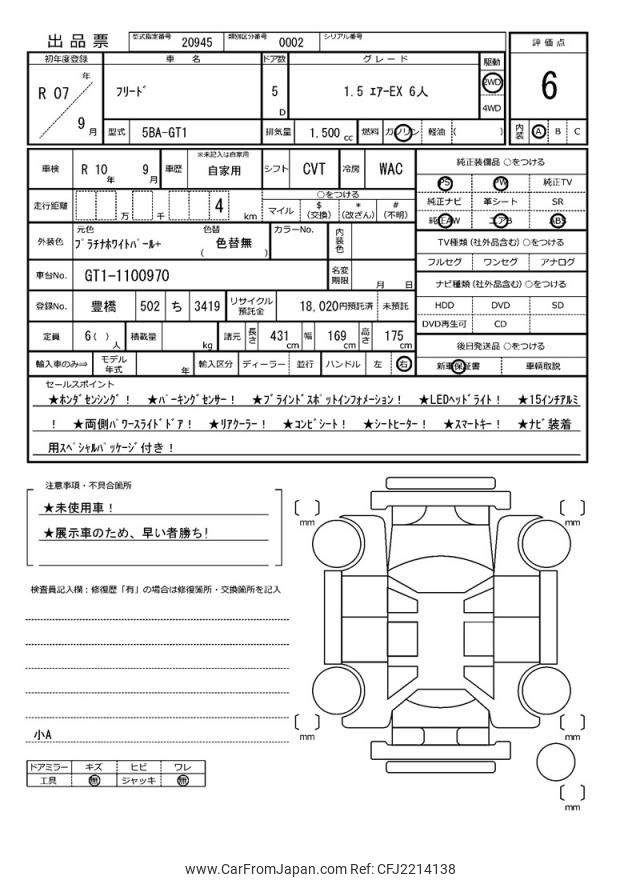 出品票 型式指定番号 20945 類別区分番号 0002 シリアル番号
評価点
6
内装 A B C
初年度登録 車名 ドア数 グレード 駆動
R 07 年 9 月 フリード 5 D 1.5 エアーEX 6人 2WD 4WD
型式 5BA-GT1 排気量 1.500 cc 燃料 ガソリン 軽油 ( )
車検 R 10 年 9 月 車歴 ※未記入は自家用 自家用 シフト CVT 冷房 WAC
走行距離 万 千 4 km
○をつける
マイル $(交換) *(改ざん) #(不明)
外装色 元色 プラチナホワイトパール+ 色替 ( 色替無 ) カラーNo. 内装色
車台No. GT1-1100970 名変期限 月 日
登録No. 豊橋 502 ち 3419 リサイクル預託金 18,020円預託済 未預託
定員 6( ) 人 積載量 kg 諸元 長さ 431 cm 幅 169 cm 高さ 175 cm
輸入車のみ⇨ モデル年式 年 輸入区分 ディーラー 並行 ハンドル 左 右
純正装備品 ○をつける
PS PW 純正TV
純正ナビ 革シート SR
純正AW エアB ABS
TV種類 (社外品含む) ○をつける
フルセグ ワンセグ アナログ
ナビ種類 (社外品含む) ○をつける
HDD DVD SD
DVD再生可 CD
後日発送品 ○をつける
新車保証書 車輌取説
セールスポイント
★ホンダセンシング! ★パーキングセンサー! ★ブラインドスポットインフォメーション! ★LEDヘッドライト! ★15インチアルミ
! ★両側パワースライドドア! ★リアクーラー! ★コンビシート! ★シートヒーター! ★スマートキー! ★ナビ装着
用スペシャルパッケージ付き!
注意事項・不具合箇所
★未使用車!
★展示車のため、早い者勝ち!
検査員記入欄:修復歴「有」の場合は修復箇所・交換箇所を記入
小A
ドアミラー キズ ヒビ ワレ
工具 無 ジャッキ 無
mm
mm
mm
mm
mm
www.CarFromJapan.com Ref: CFJ2214138